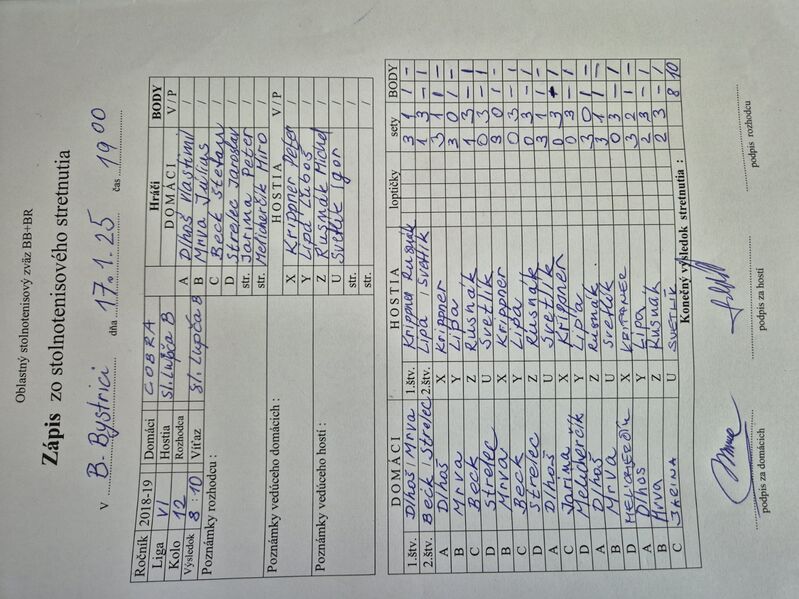 Oblastný stolnotenisový zväz BB+BR
Zápis zo stolnotenisového stretnutia
v B. Bystrici dňa 17.1.25 čas 19 00
Ročník 2018-19 Domáci COBRA
Liga VI Hostia Sl. Ľupča B
Kolo 12 Rozhodca
Výsledok 8:10 Víťaz Sl. Ľupča B
Poznámky rozhodcu :
Poznámky vedúceho domácich :
Poznámky vedúceho hostí :
Hráči BODY
DOMÁCI V / P
A Dlhoš Vlastimil /
B Mrva Július /
C Beck Štefan /
D Strelec Jaroslav /
str. Jarina Peter /
str. Melicherčík Miro /
HOSTIA V / P
X Krippner Peter /
Y Lipa Ľuboš /
Z Rusnák Michal /
U Svetlík Igor /
str. /
str. /
DOMÁCI HOSTIA loptičky sety BODY
1.štv. Dlhoš / Mrva 1.štv. Krippner Rusnák 3 1 1 -
2.štv. Beck / Strelec 2.štv. Lipa / Svetlík 1 3 - 1
A Dlhoš X Krippner 3 1 1 -
B Mrva Y Lipa 3 0 1 -
C Beck Z Rusnák 1 3 - 1
D Strelec U Svetlík 0 3 - 1
B Mrva X Krippner 3 0 1 -
C Beck Y Lipa 0 3 - 1
D Strelec Z Rusnák 0 3 - 1
A Dlhoš U Svetlík 3 1 1 -
C Jarina X Krippner 0 3 - 1
D Melicherčík Y Lipa 3 0 1 -
A Dlhoš Z Rusnák 3 1 1 -
B Mrva U Svetlík 0 3 - 1
D MELICHERČÍK X KRIPPNER 3 2 1 -
A Dlhoš Y Lipa 2 3 - 1
B Mrva Z Rusnák 2 3 - 1
C JARINA U SVETLÍK
Konečný výsledok stretnutia : 8 10
podpis za domácich podpis za hostí podpis rozhodcu